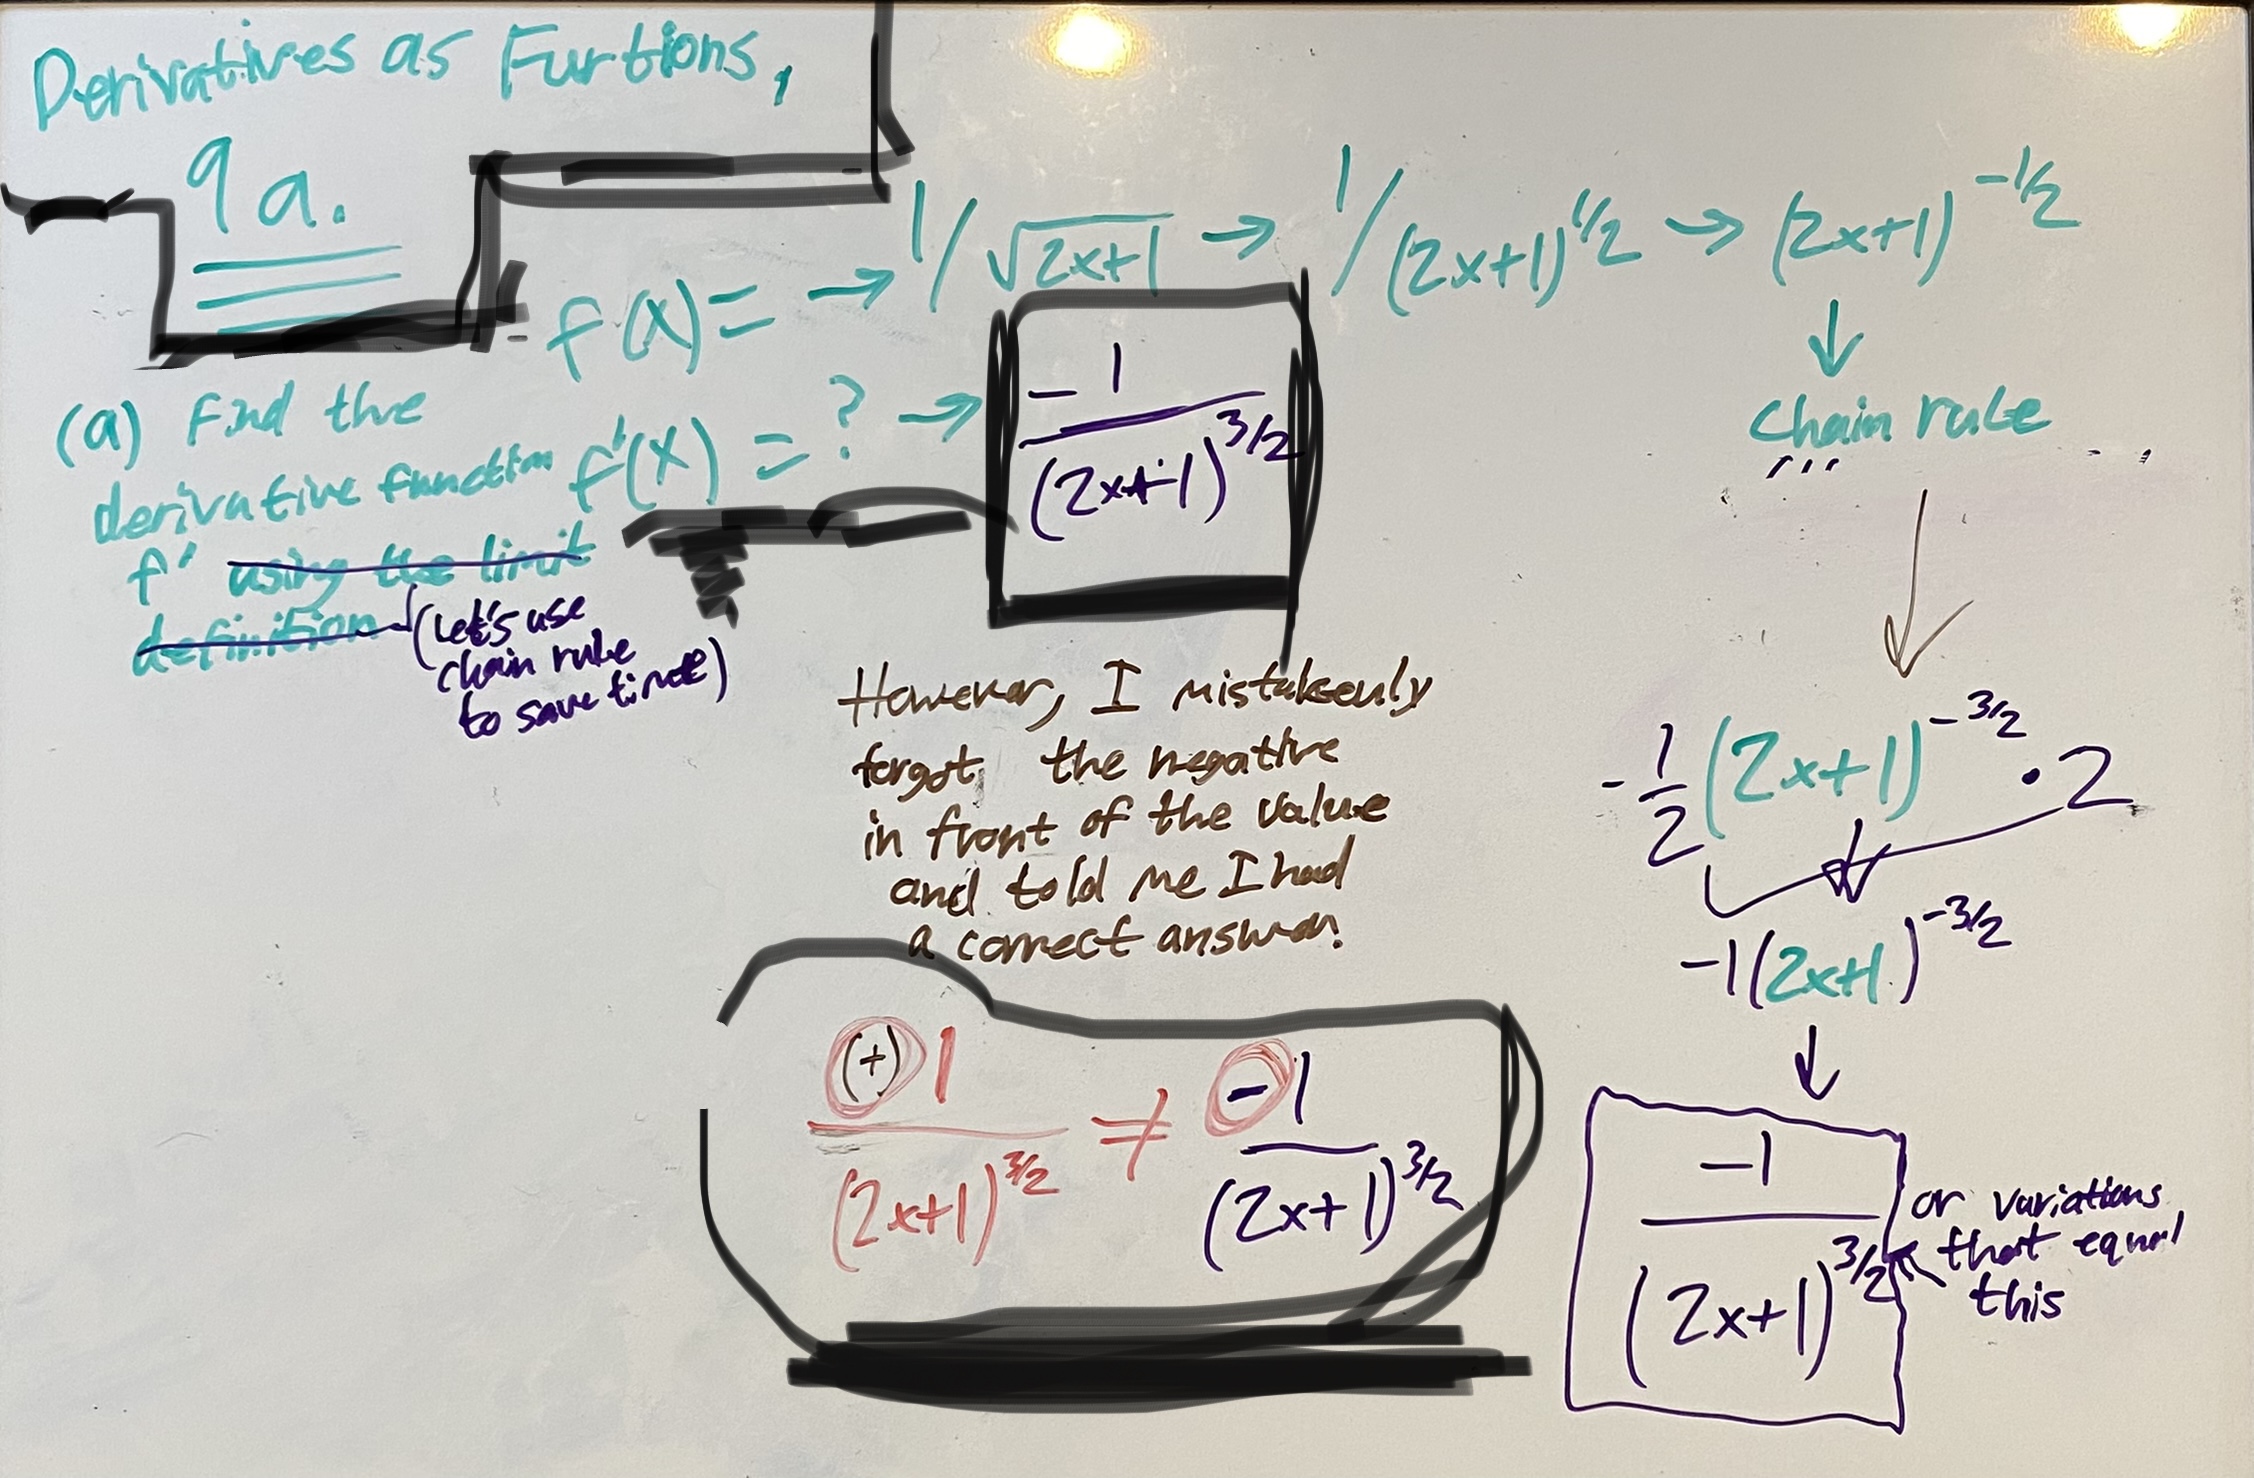 Derivatives as Functions,
9a.
f(x) = → 1/√(2x+1) → 1/(2x+1)^1/2 → (2x+1)^-1/2
↓
chain rule
(a) Find the
derivative function
f' using the limit
definition
(Let's use
chain rule
to save time)
f'(x) = ? → -1/(2x+1)^3/2
However, I mistakenly
forgot the negative
in front of the value
and told me I had
a correct answer.
(+)1/(2x+1)^3/2 ≠ -1/(2x+1)^3/2
-1/2(2x+1)^-3/2 · 2
-1(2x+1)^-3/2
↓
-1/(2x+1)^3/2
or variations
that equal
this